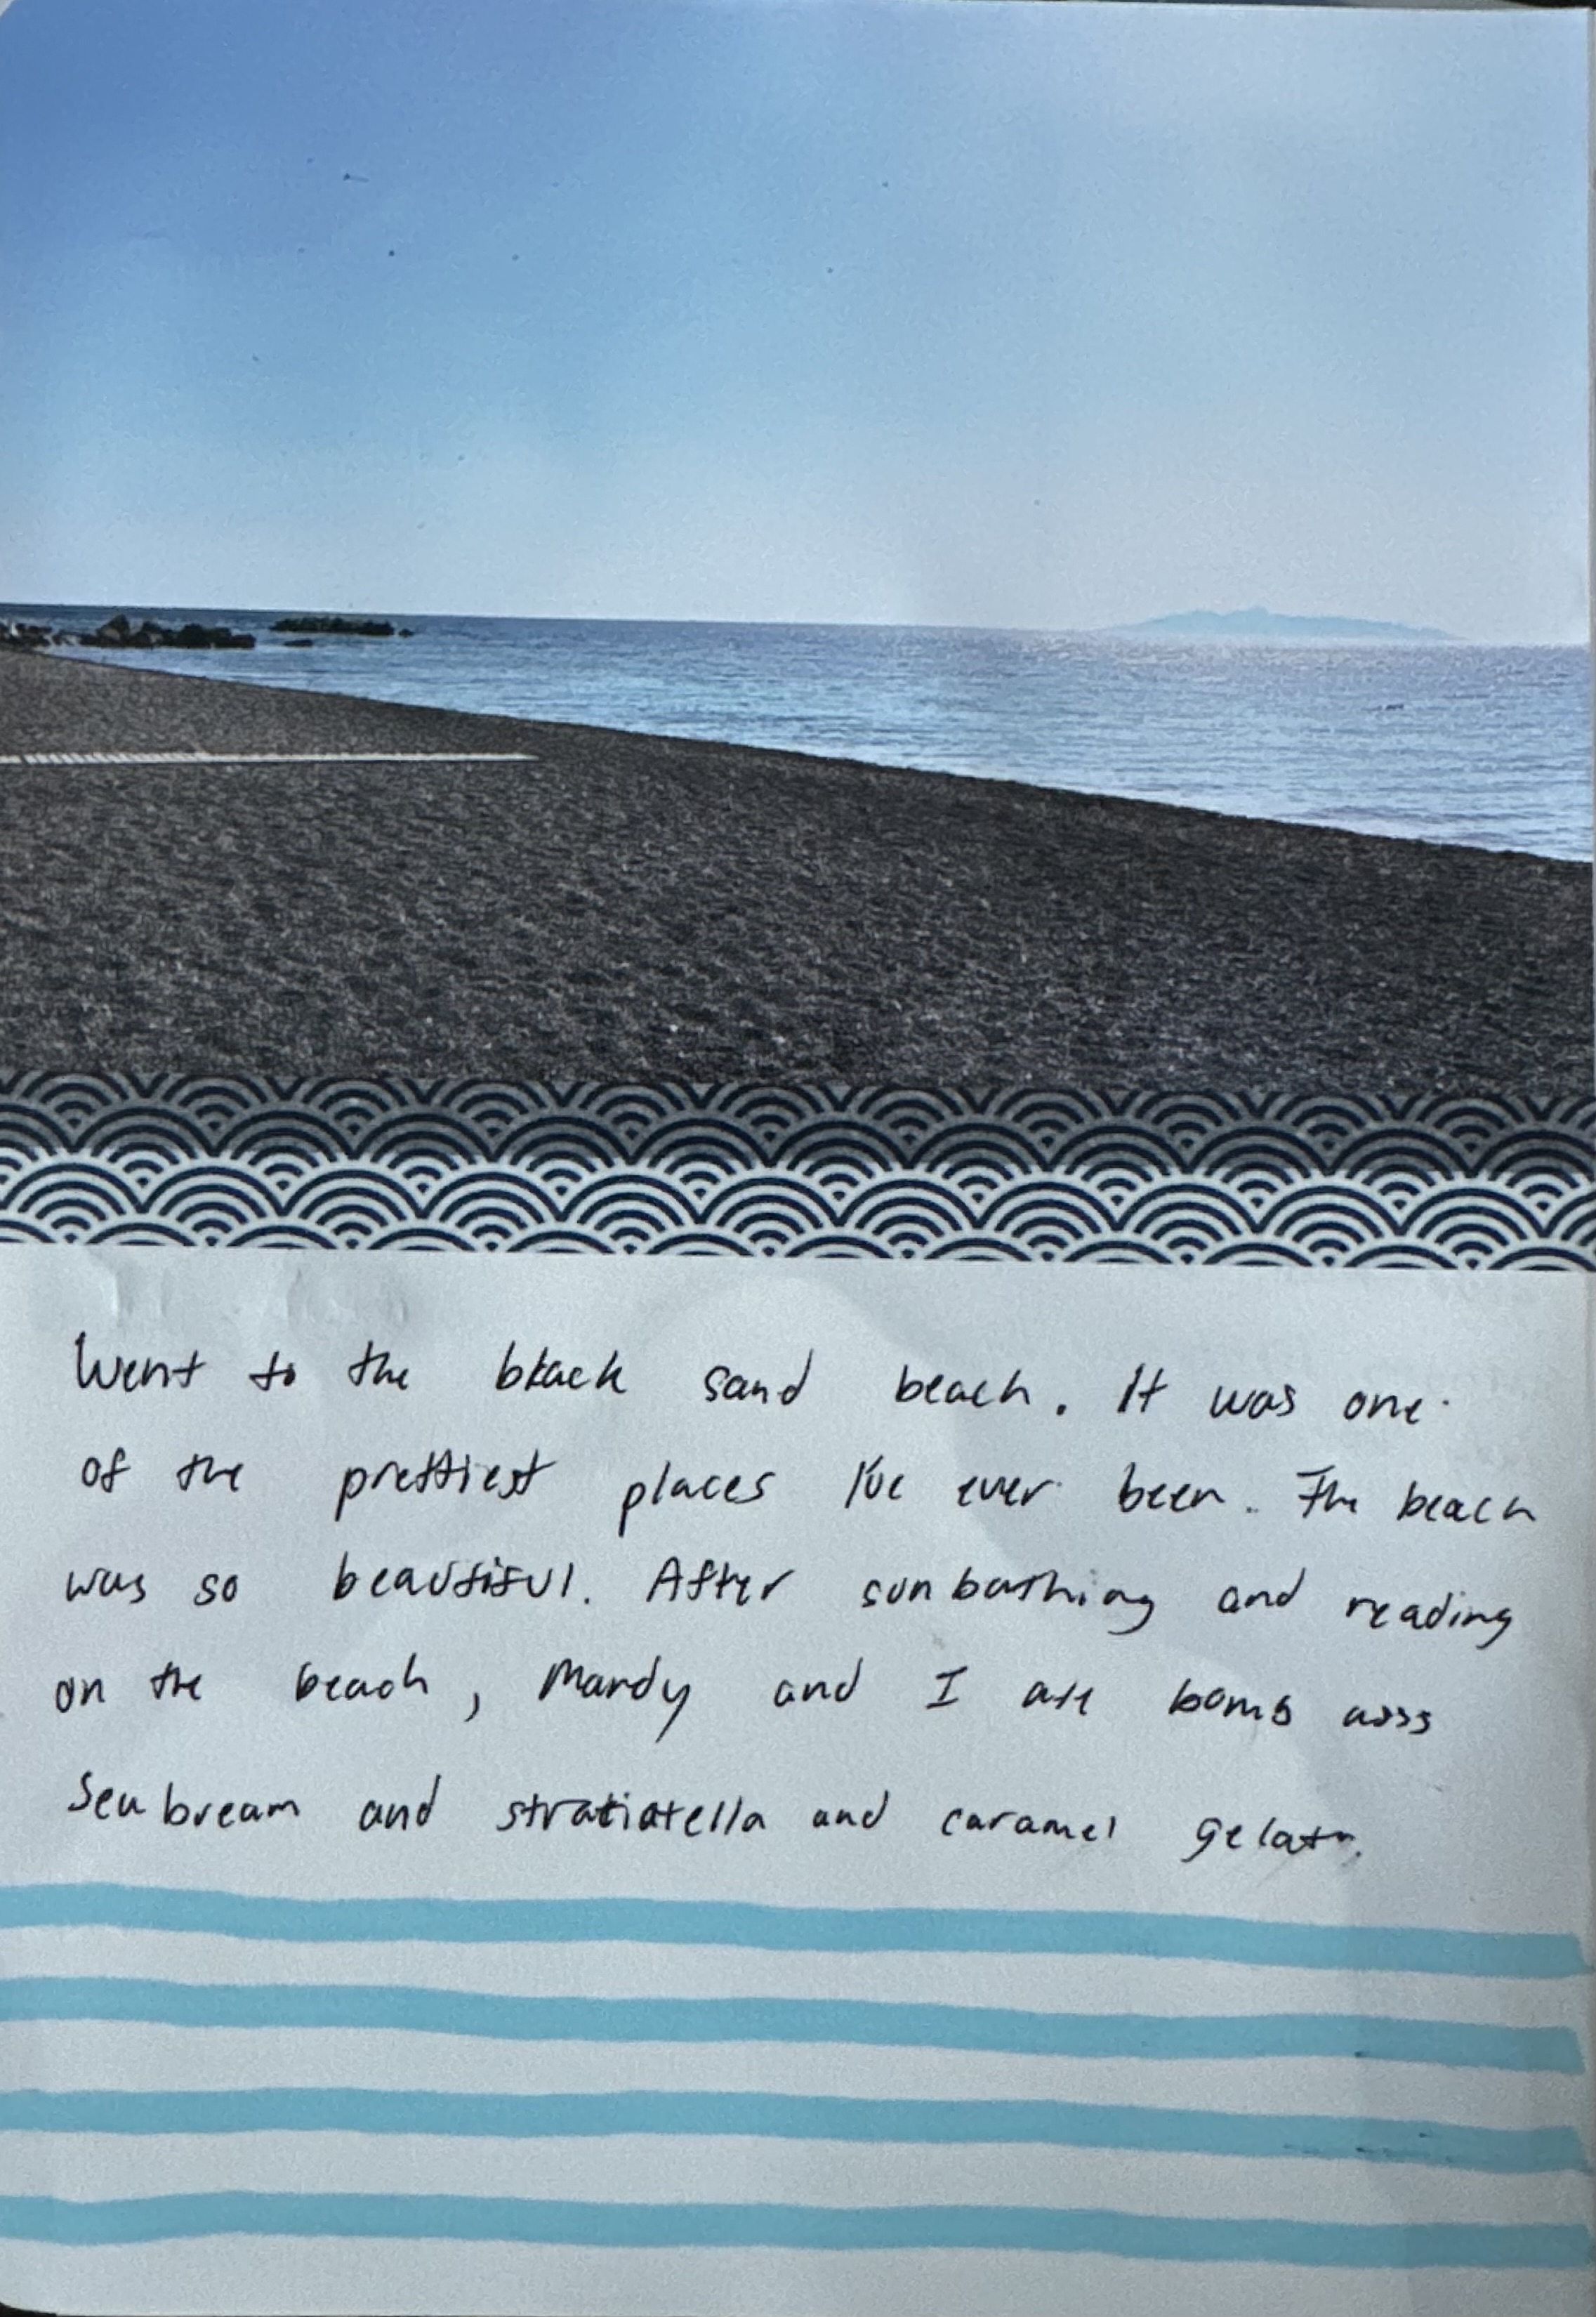 Went to the black sand beach. It was one
of the prettiest places I've ever been. The beach
was so beautiful. After sunbathing and reading
on the beach, Mandy and I ate bomb ass
sea bream and stratiatella and caramel gelato.